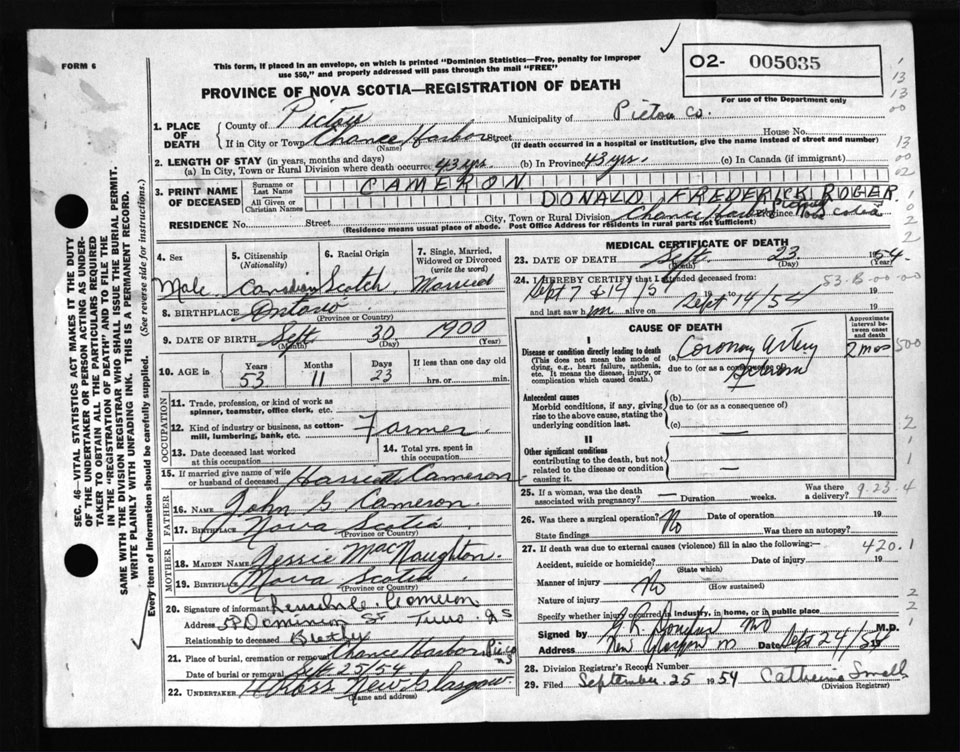 FORM 6
This form, if placed in an envelope, on which is printed "Dominion Statistics—Free, penalty for improper
use $50," and properly addressed will pass through the mail "FREE"
O2- 005035
For use of the Department only
PROVINCE OF NOVA SCOTIA—REGISTRATION OF DEATH
1. PLACE OF DEATH
County of Pictou Municipality of Pictou Co.
If in City or Town Chance Harbor Street House No.
(Name) (If death occurred in a hospital or institution, give its name instead of street and number)
2. LENGTH OF STAY (in years, months and days)
(a) In City, Town or Rural Division where death occurred 43 yrs. (b) In Province 43 yrs. (c) In Canada (if immigrant)
3. PRINT NAME OF DECEASED
Surname or Last Name CAMERON
All Given or Christian Names DONALD FREDERICK ROGER
RESIDENCE No. Street City, Town or Rural Division Chance Harbor Province Nova Scotia
(Residence means usual place of abode. Post Office Address for residents in rural parts not Sufficient)
4. Sex
Male
5. Citizenship (Nationality)
Canadian
6. Racial Origin
Scotch
7. Single, Married, Widowed or Divorced (write the word)
Married
8. BIRTHPLACE Ontario
(Province or Country)
9. DATE OF BIRTH Sept. 30 1900
(Month) (Day) (Year)
10. AGE in Years 53 Months 11 Days 23 If less than one day old hrs. or min.
OCCUPATION
11. Trade, profession, or kind of work as spinner, teamster, office clerk, etc.
12. Kind of industry or business, as cotton-mill, lumbering, bank, etc. Farmer.
13. Date deceased last worked at this occupation
14. Total yrs. spent in this occupation
15. If married give name of wife or husband of deceased Harriett Cameron
FATHER
16. Name John G Cameron.
17. Birthplace Nova Scotia
(Province or Country)
MOTHER
18. MAIDEN NAME Jessie MacNaughton.
19. BIRTHPLACE Nova Scotia.
(Province or Country)
20. Signature of informant Cameron
Address Dominion St Truro NS
Relationship to deceased Brother
21. Place of burial, cremation or removal Chance Harbor Pic. Co NS
Date of burial or removal Sept. 25/54
22. UNDERTAKER New Glasgow.
(Name and address)
MEDICAL CERTIFICATE OF DEATH
23. DATE OF DEATH Sept. 23 1954
(Month) (Day) (Year)
24. I HEREBY CERTIFY that I attended deceased from:
Sept 7 & 14/54 19 to Sept 14/54 19
and last saw him alive on 19
53-B-00-00
CAUSE OF DEATH
Approximate interval between onset and death
I
Disease or condition directly leading to death
(This does not mean the mode of dying, e.g., heart failure, asthenia, etc. It means the disease, injury, or complication which caused death.)
(a) Coronary artery Sclerosis 2 mos
due to (or as a consequence of)
Antecedent causes
Morbid conditions, if any, giving rise to the above cause, stating the underlying condition last.
(b)
due to (or as a consequence of)
(c) —
II
Other significant conditions
contributing to the death, but not related to the disease or condition causing it.
—
25. If a woman, was the death associated with pregnancy? — Duration — Weeks Was there a delivery?
9-23-4
26. Was there a surgical operation? No Date of operation 19
State findings Was there an autopsy?
27. If death was due to external causes (violence) fill in also the following:—
420.1
Accident, suicide or homicide? Date of injury 19
(State which)
Manner of injury No
(How sustained)
Nature of injury
Specify whether injury occurred in industry, in home, or in public place
Signed by MD M.D.
Address New Glasgow NS Date Sept 24/54
28. Division Registrar's Record Number
29. Filed September 25 1954 Catherine Small
(Division Registrar)
SEC. 46—VITAL STATISTICS ACT MAKES IT THE DUTY
OF THE UNDERTAKER OR PERSON ACTING AS UNDER-
TAKER TO OBTAIN ALL THE PARTICULARS REQUIRED
IN THE "REGISTRATION OF DEATH" AND TO FILE THE
SAME WITH THE DIVISION REGISTRAR WHO SHALL ISSUE THE BURIAL PERMIT.
WRITE PLAINLY WITH UNFADING INK. THIS IS A PERMANENT RECORD.
Every item of information should be carefully supplied. (See reverse side for instructions.)